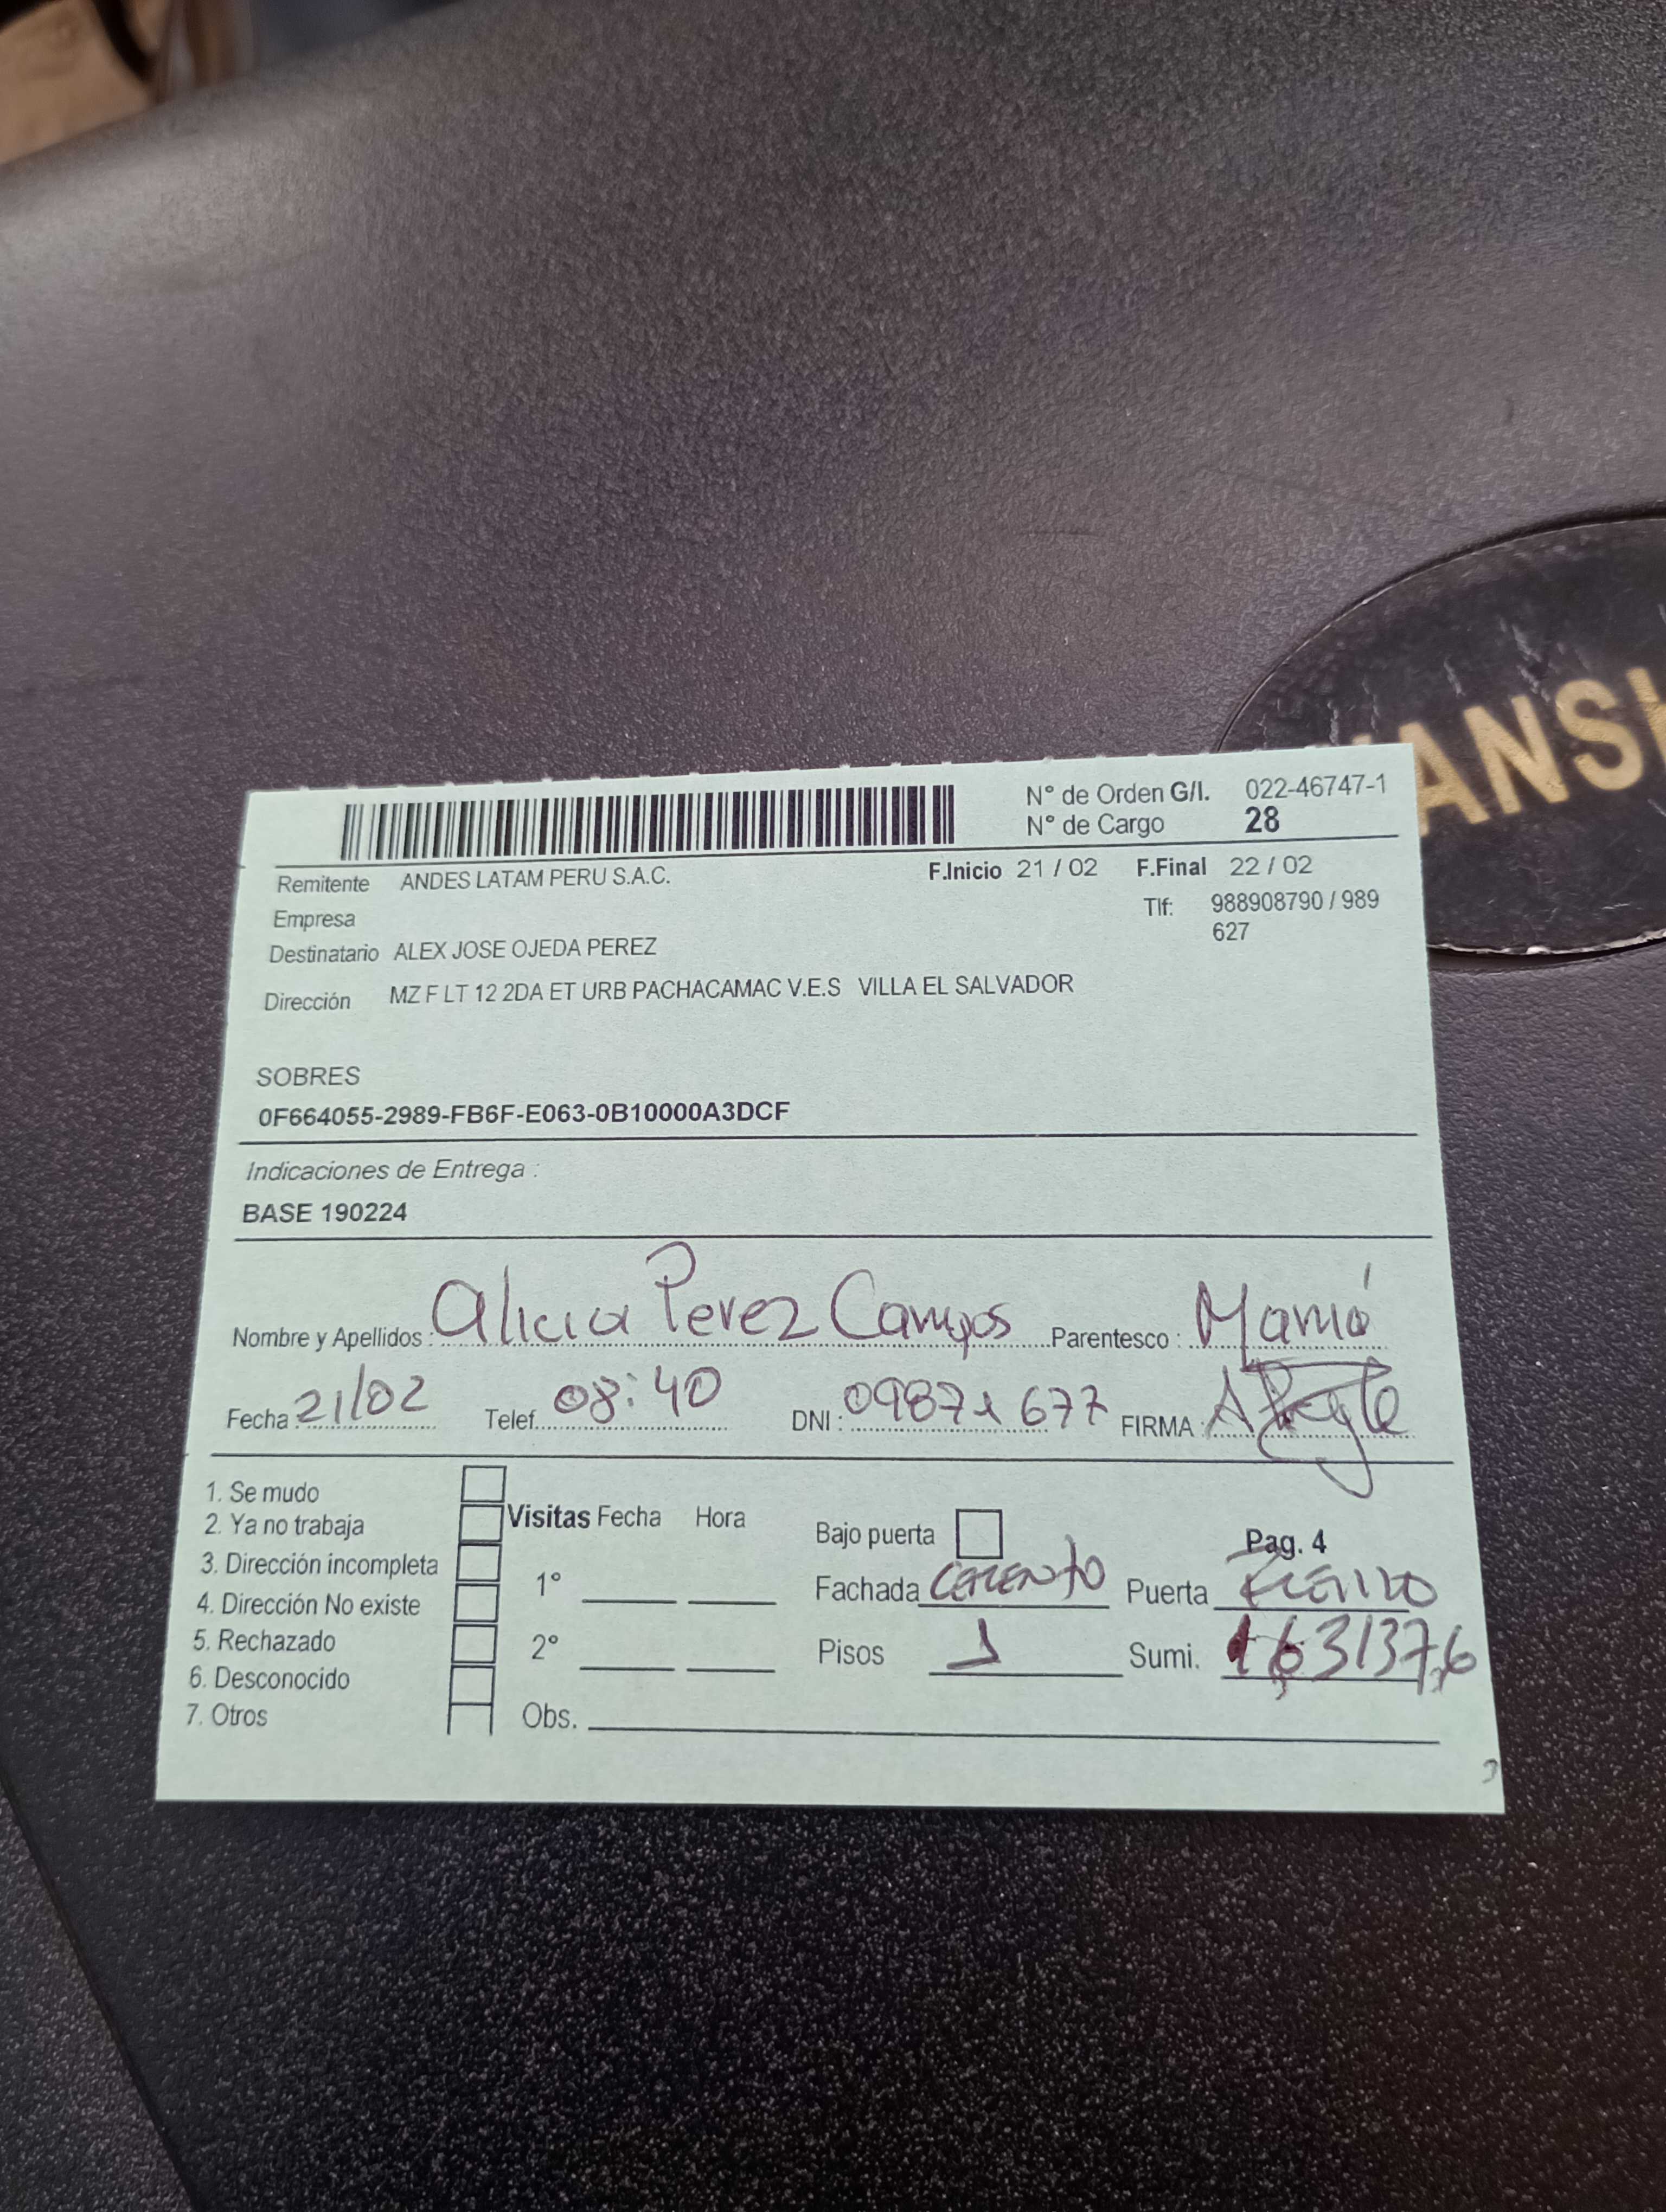 N° de Orden G/I. 022-46747-1
N° de Cargo 28
Remitente ANDES LATAM PERU S.A.C. F.Inicio 21 / 02 F.Final 22 / 02
Empresa Tlf: 988908790 / 989
627
Destinatario ALEX JOSE OJEDA PEREZ
Dirección MZ F LT 12 2DA ET URB PACHACAMAC V.E.S VILLA EL SALVADOR
SOBRES
0F664055-2989-FB6F-E063-0B10000A3DCF
Indicaciones de Entrega :
BASE 190224
Nombre y Apellidos : Alicia Perez Campos Parentesco : Mamá
Fecha : 21/02 Telef. 08:40 DNI : FIRMA :
1. Se mudo
2. Ya no trabaja
3. Dirección incompleta
4. Dirección No existe
5. Rechazado
6. Desconocido
7. Otros
Visitas Fecha Hora
1°
2°
Obs.
Bajo puerta Pag. 4
Fachada Puerta
Pisos 1 Sumi. 1631376
ANS